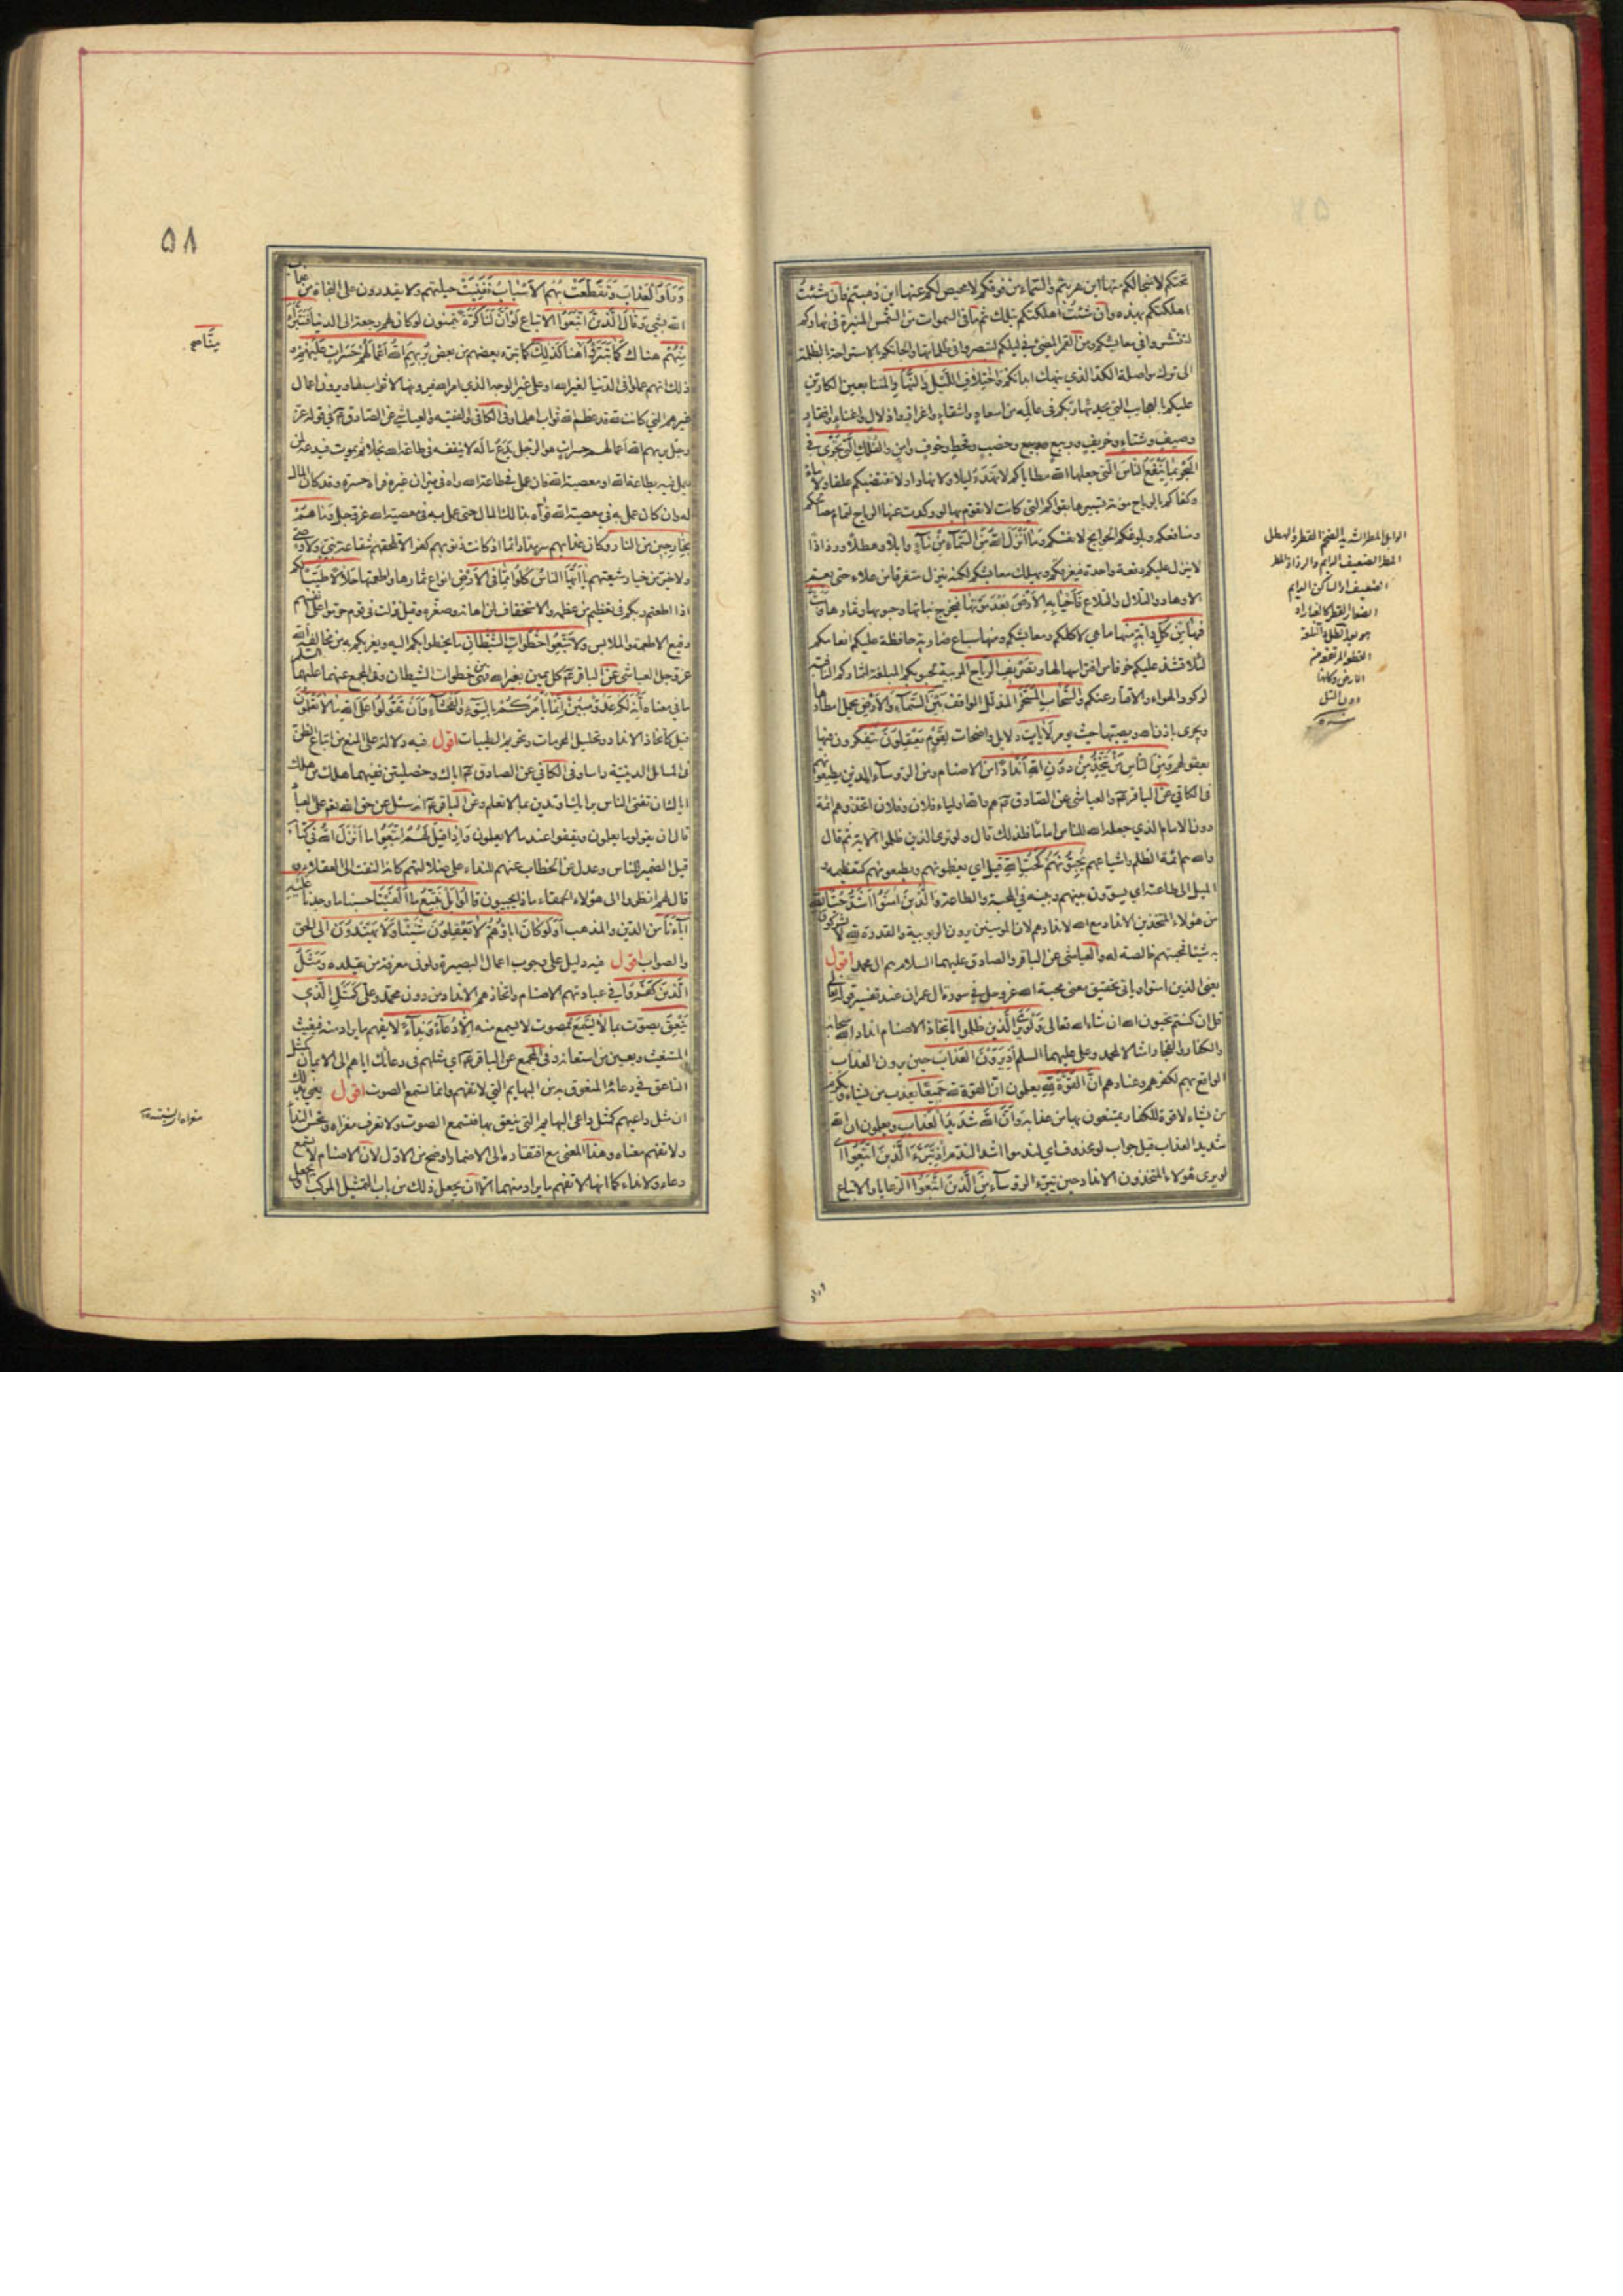 تحتكم لا منجا لكم منها اين هربتم والسماء من فوقكم لا محيص لكم عنها اين ذهبتم فان شئت
اهلكتكم بهذه وان شئت اهلكتكم بتلك ثم ما في السموات من الشمس المنيرة في نهاركم
لتنتشروا في معايشكم ومن القمر المضئ في ليلكم لتبصروا في ظلماتها والجائكم بالاستراحة بالظلمة
الى ترك مواصلة الكد الذي ينهك ابدانكم واختلاف الليل والنهار المتتابعين الكارين
عليكم بالعجايب التي يحدثها ربكم في عالمه من اسعاد واشقاء واعزاز واذلال واغناء وافقار
وصيف وشتاء وخريف وربيع وخصب وقحط وخوف وامن والفلك التي تجري في
البحر بما ينفع الناس التي جعلها الله مطاياكم لا تهدء ليلا ولا نهارا ولا تقتضيكم علفا ولا ماء
وكفاكم بالرياح مؤنة تسييرها بقواكم التي كانت لا تقوم بها لو ركدت عنها الرياح لتمام مصالحكم
ومنافعكم وبلوغكم الحوايج لانفسكم وما انزل الله من السماء من ماء وابلا وهطلا ورذاذا
لا ينزل عليكم دفعة واحدة فيغرقكم ويهلك معايشكم لكنه ينزل متفرقا من علاء حتى يعم
الاوهاد والتلال والتلاع فاحيا به الارض بعد موتها فيخرج نباتها وحبوبها وثمارها وبث
فيها من كل دابة منها ما هي لاكلكم ومعايشكم ومنها سباع ضارية حافظة عليكم انعامكم
لئلا تشذ عليكم خوفا من افتراسها لها وتصريف الرياح المربية لحبوبكم المبلغة لثماركم النافية
لركود الهواء والاقتار عنكم والسحاب المسخر المذلل الواقف بين السماء والارض يحمل امطارها
ويجري باذن الله ويصبها حيث يؤمر لآيات دلايل واضحات لقوم يعقلون يتفكرون فيها
بعقولهم ومن الناس من يتخذ من دون الله اندادا من الاصنام ومن الرؤساء الذين يطيعونهم
في الكافي عن الباقر ع والعياشي عن الصادق ع هم والله اولياء فلان وفلان اتخذوهم ائمة
دون الامام الذي جعله الله للناس اماما فلذلك قال ولو يرى الذين ظلموا الآية ثم قال
والله هم ائمة الظلم واشياعهم يحبونهم كحب الله قيل اي يعظمونهم ويطيعونهم كتعظيمه و
الميل الى طاعته اي يسوون بينهم وبينه في المحبة والطاعة والذين امنوا اشد حبا لله
من هؤلاء المتخذين الانداد مع الله لاندادهم لان المؤمنين يرون الربوبية والقدرة لله لا يشركون
به شيئا فمحبتهم خالصة له والعياشي عن الباقر والصادق عليهما السلام هم ال محمد اقول
يعني الذين امنوا وياتي تحقيق معنى محبة الله عز وجل في سورة ال عمران عند تفسير قوله تعالى
قل ان كنتم تحبون الله ان شاء الله تعالى ولو يرى الذين ظلموا باتخاذ الاصنام اندادا لله سبحانه
والكفار والفجار امثالا لمحمد وعلي عليهما السلم اذ يرون العذاب حين يرون العذاب
الواقع بهم لكفرهم وعنادهم ان القوة لله يعلمون ان القوة لله جميعا يعذب من يشاء ويكرم
من يشاء لا قوة للكفار يمتنعون بها من عذابه وان الله شديد العذاب ويعلمون ان الله
شديد العذاب قيل جواب لو محذوف اي لندموا اشد الندم اذ تبرء الذين اتبعوا اي
لو يرى هؤلاء المتخذون الانداد حين تبرء الرؤساء من الذين اتبعوا الرعايا والاتباع
الوابل المطر الشديد الضخم القطرة الهطل
المطر الضعيف الدايم والرذاذ المطر
الضعيف او الساكن الدايم
الصغار القطر كالغبار
٥٨
وراوا العذاب وتقطعت بهم الاسباب ففنيت حيلتهم ولا يقدرون على النجاة من عذاب
الله بشئ وقال الذين اتبعوا الاتباع لو ان لنا كرة يتمنون لو كان لهم رجعة الى الدنيا فنتبرء
منهم هناك كما تبرؤا منا هنا كذلك كما تبرء بعضهم من بعض يريهم الله اعمالهم حسرات عليهم و
ذلك انهم عملوا في الدنيا لغير الله او على غير الوجه الذي امر الله فيرونها لا ثواب لها ويرون اعمال
غيرهم التي كانت لله قد عظم الله ثواب اهلها وفي الكافي والفقيه والعياشي عن الصادق ع في قوله عز
وجل يريهم الله اعمالهم حسرات هو الرجل يدع ماله لا ينفقه في طاعة الله بخلا ثم يموت فيدعه لمن
يعمل فيه بطاعة الله او معصية الله فان عمل في طاعة الله راه في ميزان غيره فراه حسرة وقد كان المال
له وان كان عمل به في معصية الله قواه بذلك المال حتى عمل به في معصية الله عز وجل وما هم
بخارجين من النار وكان عذابهم سرمدا دائما اذ كانت ذنوبهم كفرا لا تلحقهم شفاعة نبي ولا وصي
ولا خير من خيار شيعتهم يا ايها الناس كلوا مما في الارض انواع ثمارها واطعمتها حلالا طيبا لكم
اذا اطعتم ربكم في تعظيم من عظمه والاستخفاف بمن اهانه وصغره وقيل نزلت في قوم حرموا على انفسهم
رفيع الاطعمة والملابس ولا تتبعوا خطوات الشيطان ما يخطو بكم اليه ويغريكم به من مخالفة الله
عز وجل العياشي عن الباقر ع كل يمين بغير الله فهي من خطوات الشيطان وفي المجمع عنهما عليهما السلم
ما في معناه انه لكم عدو مبين انما يامركم بالسوء والفحشاء وان تقولوا على الله ما لا تعلمون
قيل كاتخاذ الانداد وتحليل المحرمات وتحريم الطيبات اقول فيه دلالة على المنع من اتباع الظن
في المسائل الدينية راسا وفي الكافي عن الصادق ع اياك وخصلتين ففيهما هلك من هلك
اياك ان تفتي الناس برايك او تدين بما لا تعلم وعن الباقر ع انه سئل عن حق الله تعالى على العباد
قال ان يقولوا ما يعلمون ويقفوا عند ما لا يعلمون واذا قيل لهم اتبعوا ما انزل الله في كتابه
قيل الضمير للناس وعدل عن الخطاب عنهم للنداء على ضلالتهم كانه التفت الى العقلاء و
قال لهم انظروا الى هؤلاء الحمقاء ماذا يجيبون قالوا بل نتبع ما الفينا حسبنا ما وجدنا عليه
آباءنا من الدين والمذهب اولو كان اباؤهم لا يعقلون شيئا ولا يهتدون الى الحق
والصواب اقول فيه دليل على وجوب اعمال البصيرة ولو في معرفة من يقلده ومثل
الذين كفروا في عبادتهم الاصنام واتخاذهم الانداد من دون محمد وعلي كمثل الذي
ينعق يصوت بما لا يسمع بصوت لا يسمع منه الا دعاء ونداء لا يفهم ما يراد منه فيغيث
المستغيث ويعين من استعانه وفي المجمع عن الباقر ع اي مثلهم في دعائك اياهم الى الايمان كمثل
الناعق في دعائه المنعوق به من البهايم التي لا تفهم وانما تسمع الصوت اقول يعني بذلك
ان مثل داعيهم كمثل داعي البهايم التي ينعق بها فتسمع الصوت ولا تعرف مغزاه وتحس النداء
ولا تفهم معناه وهذا المعنى مع افتقاره الى الاضمار اوضح من الاول لان الاصنام لا تسمع
دعاء ولا نداء كما انها لا تفهم ما يراد منهما الا ان يجعل ذلك من باب التمثيل المركب